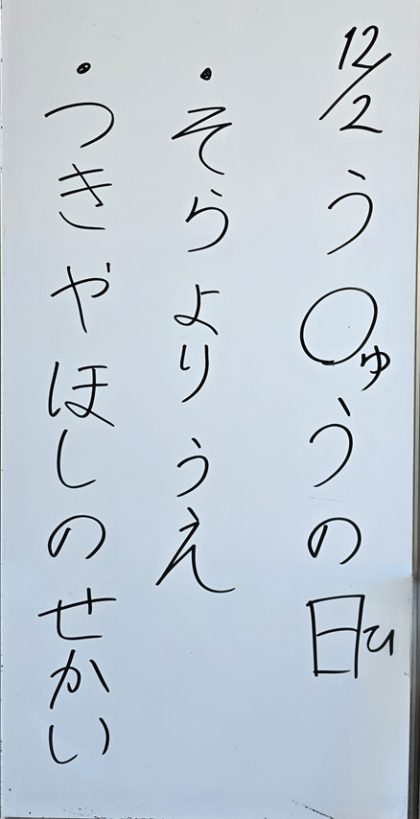 12/2 う〇ゅうの日ひ
・そらよりうえ
・つきやほしのせかい